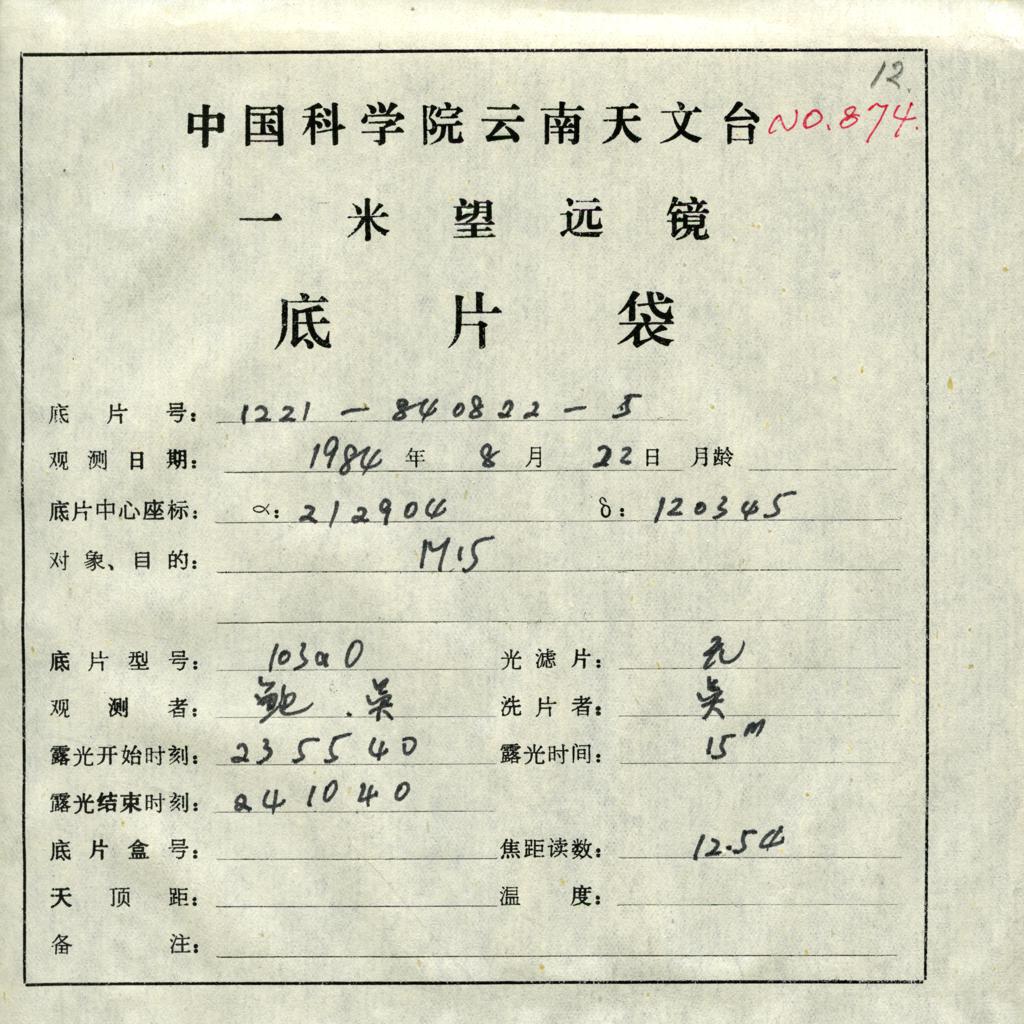 12.
中国科学院云南天文台 NO.874.
一米望远镜
底片袋
底片号: 1221-840822-5
观测日期: 1984年 8月 22日 月龄
底片中心座标: α: 212904 δ: 120345
对象、目的: M15
底片型号: 103aO 光滤片: 无
观测者: 鲍.吴 洗片者: 吴
露光开始时刻: 235540 露光时间: 15m
露光结束时刻: 241040
底片盒号: 焦距读数: 12.54
天顶距: 温度:
备注: